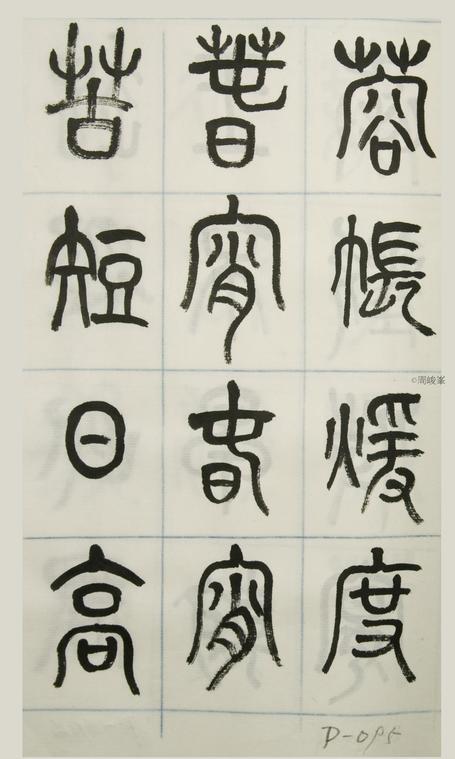 蓉帳煖度
春宵春宵
苦短日高
©周峻峯
D-095